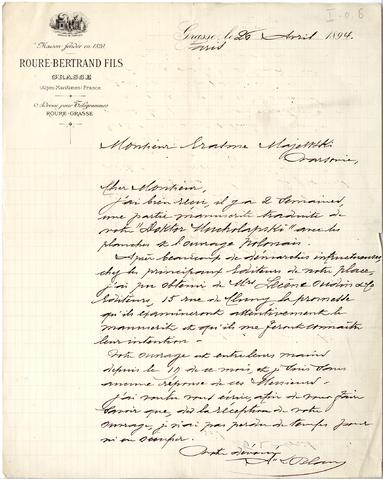 I.0.6
Maison fondée en 1820
ROURE-BERTRAND FILS
GRASSE
(Alpes-Maritimes) France
Adresse pour Télégrammes
ROURE-GRASSE
Grasse, le 26 Avril 1894.
Paris
Monsieur Erasme Majewski
Varsovie,
Cher Monsieur,
J'ai bien reçu, il y a 2 semaines,
une partie manuscrit traduite de
votre "Doktor Muchołapski" avec les
planches et l'ouvrage Polonais.
Après beaucoup de démarches infructueuses
chez les principaux Editeurs de notre place,
j'ai pu obtenir de Mrs Lecène Oudin & Cie
Editeurs, 15 rue de Cluny la promesse
qu'ils examineront attentivement le
manuscrit et qu'ils me feront connaître
leur intention.
Votre ouvrage est entre leurs mains
depuis le 19 de ce mois, et je suis sans
aucune réponse de ces Messieurs.
J'ai voulu vous écrire, afin de vous faire
savoir que, dès la réception de votre
ouvrage, je n'ai pas perdu de temps pour
m'en occuper.
Votre dévoué